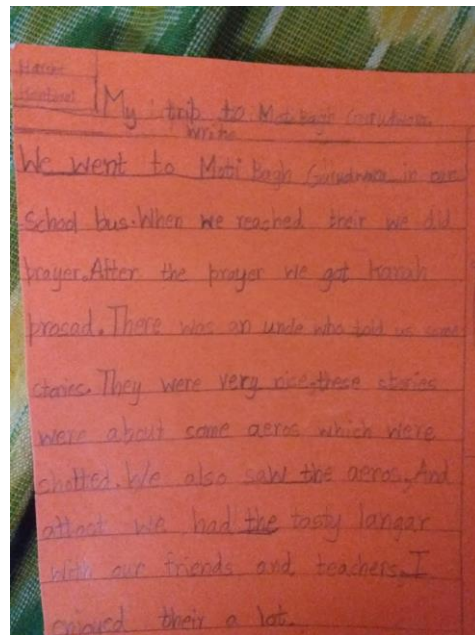 My trip to Moti Bagh Gurudwara
write
We went to Moti Bagh Gurudwara in our
school bus. When we reached their we did
prayer. After the prayer we got karah
prosad. There was an uncle who told us some
stories. They were very nice, these stories
were about some aeros which were
shotted. We also saw the aeros, And
atloot we had the tasty langar
with our friends and teachers, I
enjoyed their a lot.